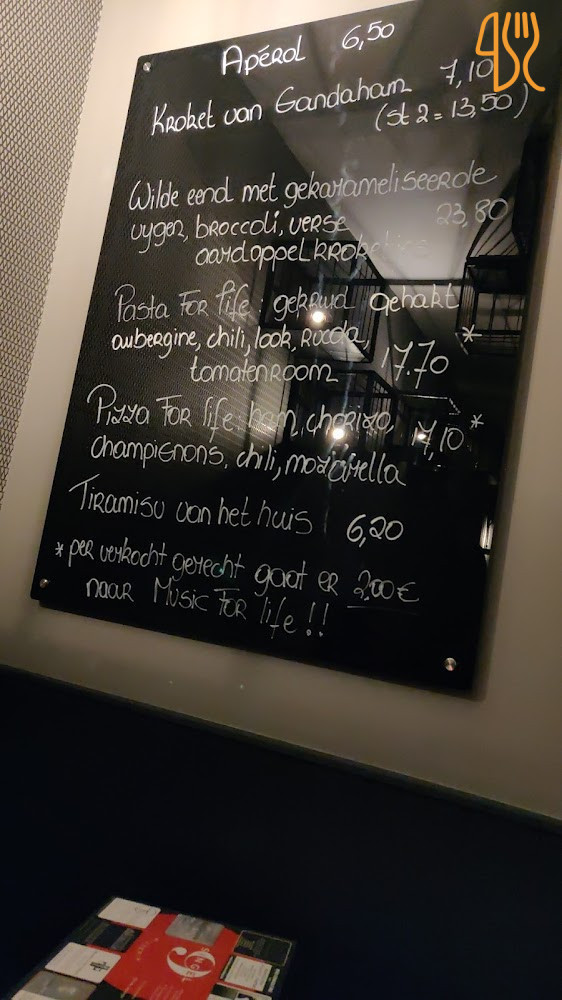 Apérol 6,50
Kroket van Gandaham 7,10
(St 2 = 13,50)
Wilde eend met gekarameliseerde
vygen, broccoli, verse 23,80
aardappelkroketjes
Pasta For life: gekruid gehakt
aubergine, chili, look, Rucola, *
tomatenroom 17.70
Pizza For life: ham, chorizo,
champignons, chili, mozarella *
Tiramisu van het huis 6,20
* per verkocht gerecht gaat er 2,00€
naar Music For life!!